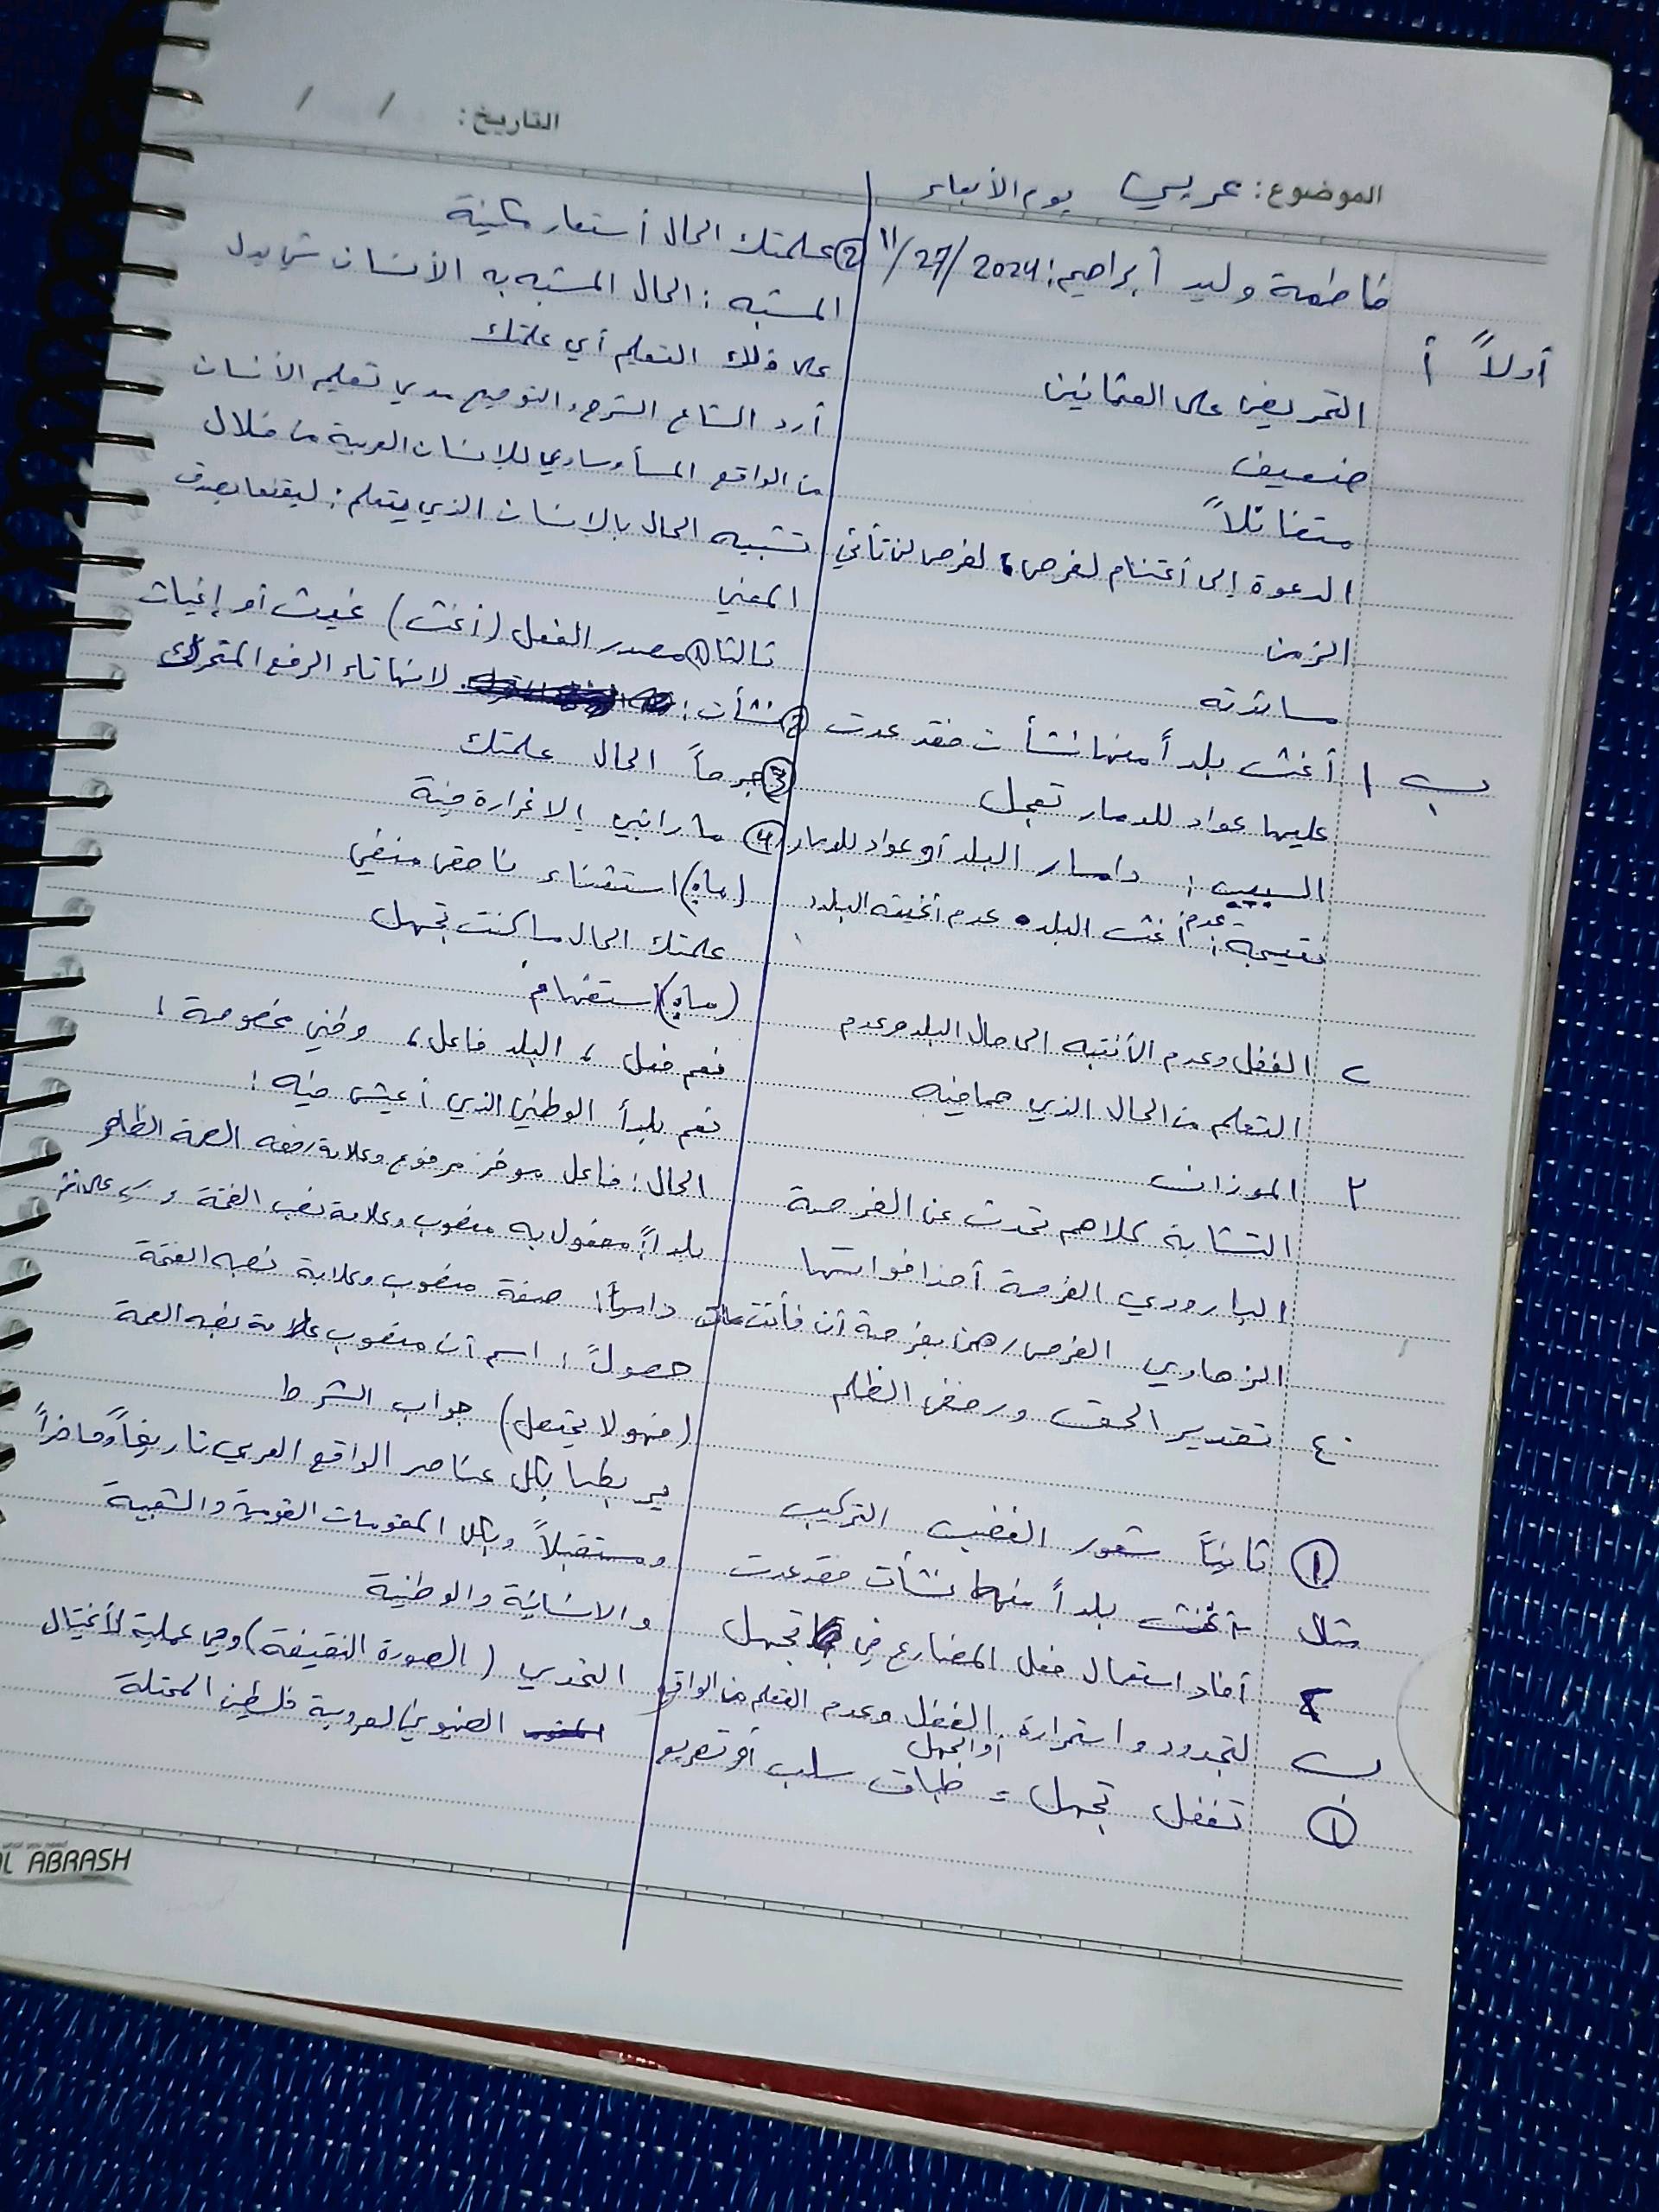 التاريخ: / /
الموضوع: عربي يوم الأبعاء
فاطمة وليد أبراهيم: 2024/ 27/ 11
أولاً أ
التحريض على العثمانين
ضعيف
متفائلاً
الدعوة إلى أغتنام لفرص، لفرص لن تأتي
الزمن
مساندته
ب ١ أغث بلداً منها نشأت فقد عدت
عليها عواد للدمار تعجل
السبب: دامار البلد أو عواد للدمار
نتيجة: عدم أغث البلد عدم أغيثه البلد
٢ الغفل وعدم الأنتبه الى حال البلد وعدم
التعلم من الحال الذي هما فيه
٣ الموزانت
التشابة كلاهم تحدث عن الفرصة
البارودي الفرصة أحذا فواتتها
الزهاوي الفرص رهن بفرصة أن فأتت
٤ تقدير الحق ورفض الظلم
① ثانياً شعور الغضب التركيب
مثال أغث بلداً منها نشأت فقد عدت
٤ أفاد استعمال فعل المضارع في تجهل
ب لتجدود واستمرارة الغفل وعدم التعلم من الواقع
أو الجهل
① تغفل تجهل = طباق سلب أو تصريع
② علمتك الحال أستعار مكنية
المشبه: الحال المشبه به الأنسان شي يدل
على ذلك التعليم أي علمتك
أرد الشاع الشرح والتوضيح مدي تعليم الأنسان
من الواقع المسأوساوي للانسان العربية من خلال
تشبيه الحال بالانسان الذي يتعلم: ليقنعنا بصدق
المعني
ثالثا ① مصدر الفعل (أغث) غيث أو إغياث
② نشأت: لانها تاء الرفع المتحرك
③ جرماً الحال علمتك
④ ما رانبي الا غرارة فية
(ما) استثناء ناقص منفي
علمتك الحال ما كنت تجهل
(ما) استفهام
نعم فعل، البلد فاعل، وطني مخصوصة:
نعم بلدأ الوطني الذي أعيش فيه:
الحال: فاعل موخر مرفوع وعلامة رفعه الضمة الظاهر
بلداً: مفعول به منصوب وعلامة نصب الفتحة
دامياً: صفة منصوب وعلامة نصبه الفتحة
حصولً: اسم أن منصوب علامة نصبه الضمة
(فهو لا يحتمل) جواب الشرط
يربطها بكل عناصر الواقع العربي تاريخاً وحاضراً
ومستقبلاً وبكل المقومات القومية والشعبية
والانسانية والوطنية
التحدي (الصورة النقيضة) وهي عملية لأغتيال
الصهيوني لعروبة فلسطين المحتلة
what you need
AL ABRASH